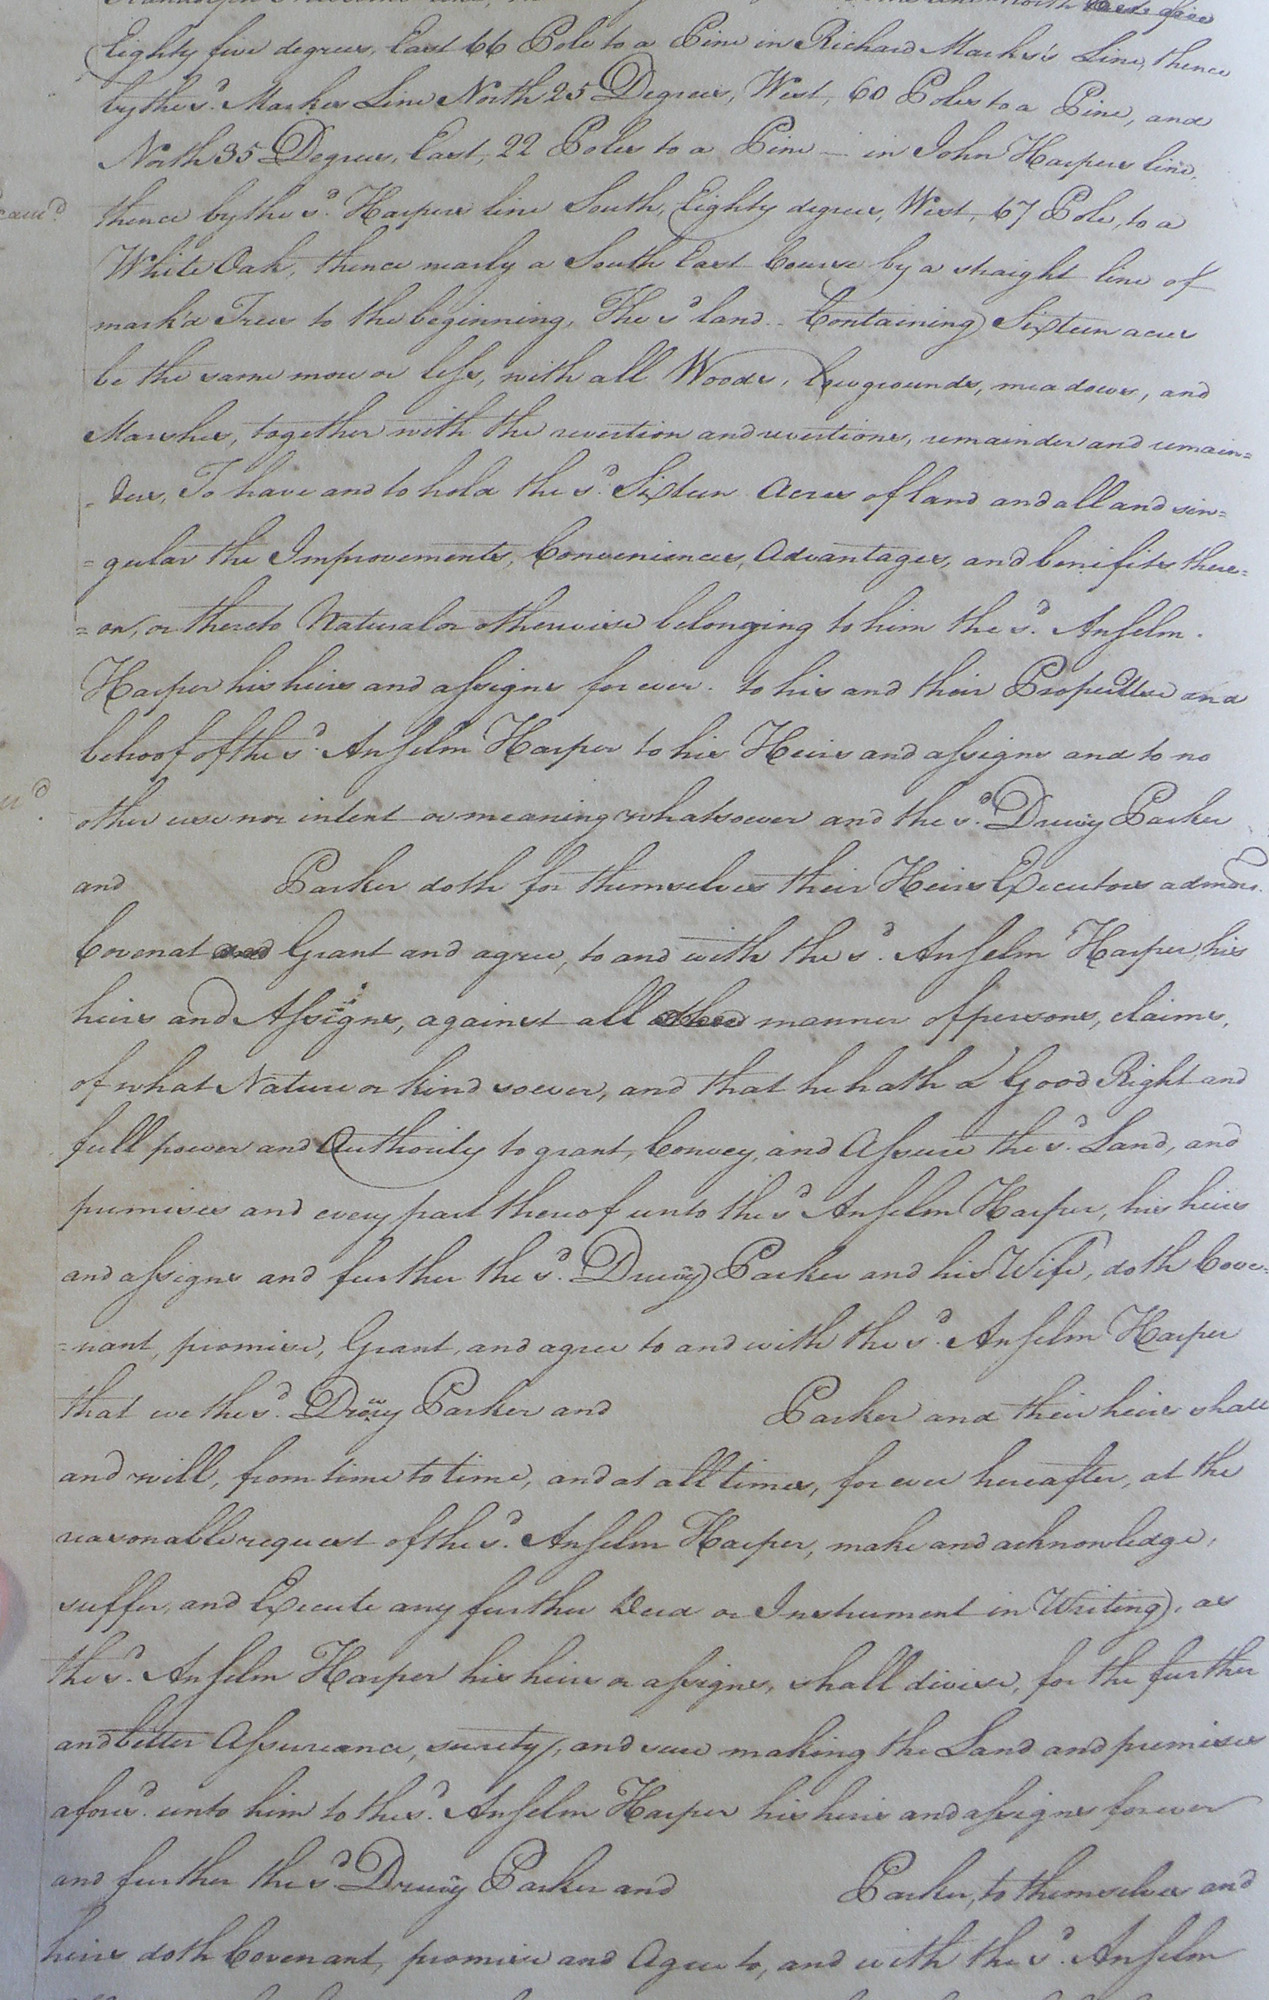 North
Eighty five degrees, East 66 Pole to a Pine in Richard Marks's Line, thence
by the sd. Markes Line North 25 Degrees, West, 60 Poles to a Pine, and
North 35 Degrees, East, 22 Poles to a Pine — in John Harpers line,
thence by the sd. Harpers line South, Eighty degrees, West, 67 Pole, to a
White Oak, thence nearly a South East Course by a straight line of
mark'd Trees to the beginning, The sd land Containing Sixteen acres
be the same more or less, with all Woods, Lowgrounds, meadows, and
Marshes, together with the revertion and revertions, remainder and remain=
-ders, To have and to hold the sd. Sixteen Acres of land and all and sin=
=gular the Improvements, Conveniences, Advantages, and benifits there=
=on, or thereto Natural or otherwise belonging to him the sd. Anselm.
Harper his heirs and assigns for ever. to his and their Proper Use and
behoof of the sd. Anselm Harper to his Heirs and assigns and to no
other use nor intent or meaning whatsoever and the sd. Drury Parker
and Parker doth for themselves their Heirs Executors admors.
Covenat Grant and agree, to and with the sd. Anselm Harper, his
heirs and Assigns, against all manner of persons, claims,
of what Nature or kind soever, and that he hath a Good Right and
full power and Authority to grant, Convey, and Assure the sd. Land, and
premises and every part thereof unto the sd Anselm Harper, his heirs
and assigns and further the sd. Drury Parker and his Wife, doth Cove=
=nant, promise, Grant, and agree to and with the sd. Anselm Harper
that we the sd. Drury Parker and Parker and their heirs shall
and will, from time to time, and at all times, for ever hereafter, at the
reasonable request of the sd. Anselm Harper, make and acknowledge,
suffer, and Execute any further Deed or Instrument in Writing, as
the sd. Anselm Harper his heirs or assigns, shall divise, for the further
and better Assureance, surety, and sure making the Land and premises
aforesd. unto him to the sd. Anselm Harper his heirs and assigns forever
and further the sd Drury Parker and Parker, to themselves and
heirs doth Covenant, promise and Agree to, and with the sd. Anselm